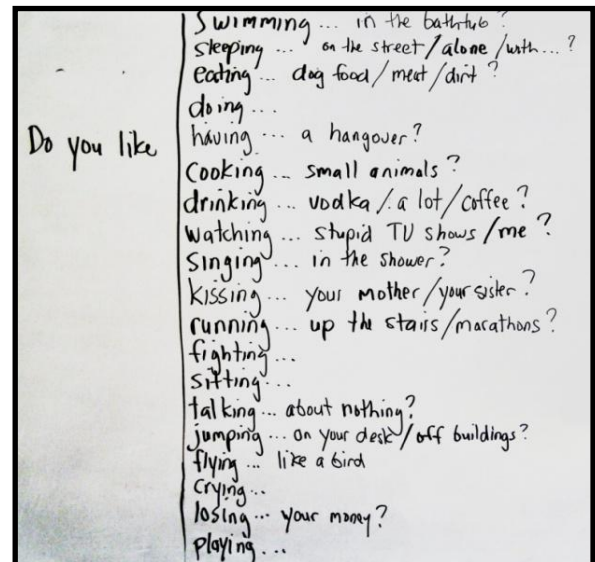 swimming ... in the bathtub?
sleeping ... on the street / alone / with...?
eating ... dog food / meat / dirt?
doing ...
Do you like
having ... a hangover?
cooking ... small animals?
drinking ... vodka / a lot / coffee?
watching ... stupid TV shows / me?
singing ... in the shower?
kissing ... your mother / your sister?
running ... up the stairs / marathons?
fighting ...
sitting ...
talking ... about nothing?
jumping ... on your desk / off buildings?
flying ... like a bird
crying ...
losing ... your money?
playing ...